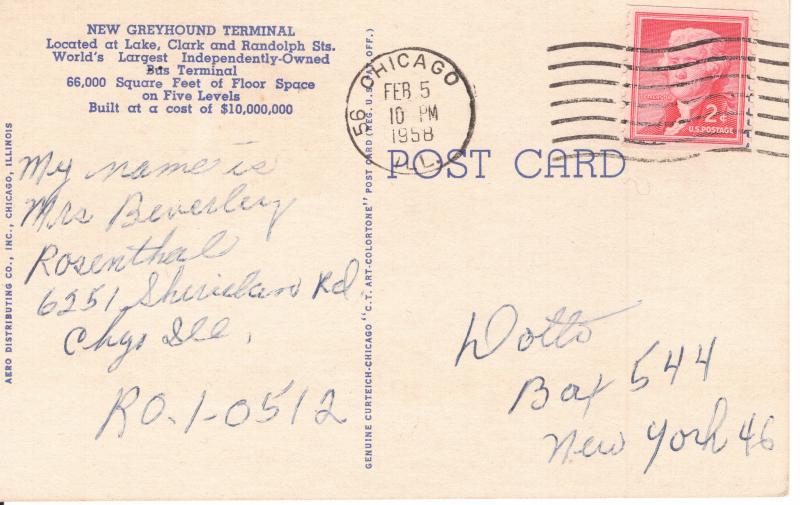 NEW GREYHOUND TERMINAL
Located at Lake, Clark and Randolph Sts.
World's Largest Independently-Owned
Bus Terminal
66,000 Square Feet of Floor Space
on Five Levels
Built at a cost of $10,000,000
My name is
Mrs Beverley
Rosenthal
6251 Sheridan Rd.
Chgo Ill.
RO.1-0512
AERO DISTRIBUTING CO., INC., CHICAGO, ILLINOIS
GENUINE CURTEICH-CHICAGO "C.T. ART-COLORTONE" POST CARD (REG. U.S. PAT. OFF.)
CHICAGO
FEB 5
10 PM
1958
ILL.
56
2¢
U.S. POSTAGE
POST CARD
Dotto
Box 544
New York 46